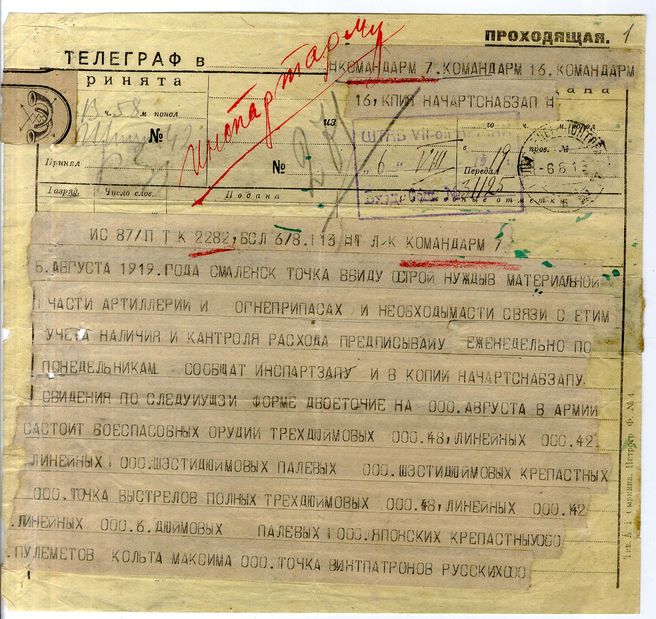 ПРОХОДЯЩАЯ. 1
ТЕЛЕГРАФ в
НКОМАНДАРМ 7. КОМАНДАРМ 16. КОМАНДАРМ
ринята
16, КПИЯ НАЧАРТСНАБЗАП Н
13 ч. 58 м. попол
№
инспартарму
из
Принял
№
"6" VIII 19
Передал
31125
Разряд.
Число слов.
Подана
ные отметки
ИС 87/П Т К 2282, БСЛ 6/8. 113 НТ Л К КОМАНДАРМ 7
6. АВГУСТА 1919. ГОДА СМАЛЕНСК ТОЧКА ВВИДУ ОСТРОЙ НУЖДЫВ МАТЕРИАЛНОЙ
ЧАСТИ АРТИЛЛЕРИИ И ОГНЕПРИПАСАХ И НЕОБХОДЫМАСТИ СВЯЗИ С ЕТИМ
УЧЕТА НАЛИЧИЯ И КАНТРОЛЯ РАСХОДА ПРЕДПИСЫВАИУ ЕЖЕНЕДЕЛЬНО ПО
ПОНЕДЕЛЬНИКАМ СООБЩАТ ИНСПАРТЗАПУ И В КОПИИ НАЧАРТСНАБЗАПУ
СВИДЕНИЯ ПО СЛЕДУИУЩЗИ ФОРМЕ ДВОЕТОЧИЕ НА 000. АВГУСТА В АРМИИ
САСТОИТ БОЕСПАСОБНЫХ ОРУДИИ ТРЕХДЮЙМОВЫХ 000. 48, ЛИНЕЙНЫХ 000. 42
ЛИНЕЙНЫХ 1 000. ШЭСТИДЮЙМОВЫХ ПАЛЕВЫХ 000. ШЭСТИДЮЙМОВЫХ КРЕПАСТНЫХ
000. ТОЧКА ВЫСТРЕЛОВ ПОЛНЫХ ТРЕХДЮЙМОВЫХ 000. 48, ЛИНЕЙНЫХ 000. 42
. ЛИНЕЙНЫХ 000. 6. ДЮЙМОВЫХ ПАЛЕВЫХ 1 000. ЯПОНСКИХ КРЕПАСТНЫХ 000
. ПУЛЕМЕТОВ КОЛЬТА МАКСИМА 000. ТОЧКА ВИНТПАТРОНОВ РУССКИХ 000